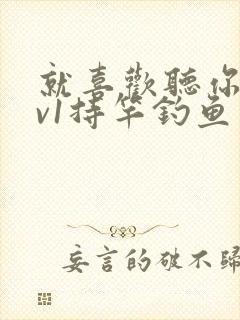 就喜歡聽你
v1持竿釣鱼
妄言的破不歸